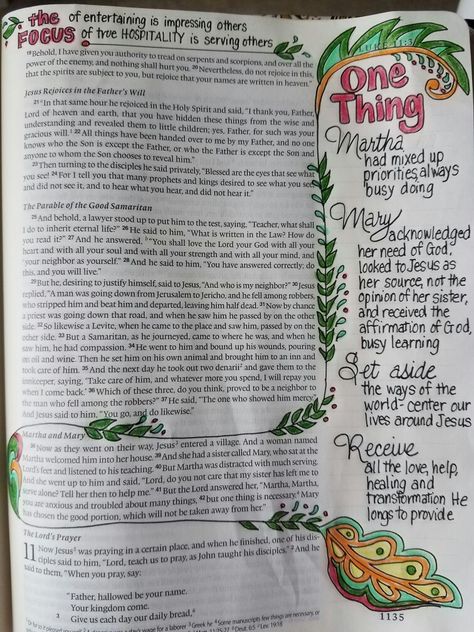 the of entertaining is impressing others
FOCUS of true HOSPITALITY is serving others
19 Behold, I have given you authority to tread on serpents and scorpions, and over all the
power of the enemy, and nothing shall hurt you. 20 Nevertheless, do not rejoice in this,
that the spirits are subject to you, but rejoice that your names are written in heaven."
Jesus Rejoices in the Father's Will
21 "In that same hour he rejoiced in the Holy Spirit and said, "I thank you, Father,
Lord of heaven and earth, that you have hidden these things from the wise and
understanding and revealed them to little children; yes, Father, for such was your
gracious will. 22 All things have been handed over to me by my Father, and no one
knows who the Son is except the Father, or who the Father is except the Son and
anyone to whom the Son chooses to reveal him."
23 Then turning to the disciples he said privately, "Blessed are the eyes that see what
you see! 24 For I tell you that many prophets and kings desired to see what you see,
and did not see it, and to hear what you hear, and did not hear it."
The Parable of the Good Samaritan
25 And behold, a lawyer stood up to put him to the test, saying, "Teacher, what shall
I do to inherit eternal life?" 26 He said to him, "What is written in the Law? How do
you read it?" 27 And he answered, "You shall love the Lord your God with all your
heart and with all your soul and with all your strength and with all your mind, and
your neighbor as yourself." 28 And he said to him, "You have answered correctly; do
this, and you will live."
29 But he, desiring to justify himself, said to Jesus, "And who is my neighbor?" 30 Jesus
replied, "A man was going down from Jerusalem to Jericho, and he fell among robbers,
who stripped him and beat him and departed, leaving him half dead. 31 Now by chance
a priest was going down that road, and when he saw him he passed by on the other
side. 32 So likewise a Levite, when he came to the place and saw him, passed by on the
other side. 33 But a Samaritan, as he journeyed, came to where he was, and when he
saw him, he had compassion. 34 He went to him and bound up his wounds, pouring
on oil and wine. Then he set him on his own animal and brought him to an inn and
took care of him. 35 And the next day he took out two denarii and gave them to the
innkeeper, saying, 'Take care of him, and whatever more you spend, I will repay you
when I come back.' 36 Which of these three, do you think, proved to be a neighbor to
the man who fell among the robbers?" 37 He said, "The one who showed him mercy."
And Jesus said to him, "You go, and do likewise."
Martha and Mary
38 Now as they went on their way, Jesus entered a village. And a woman named
Martha welcomed him into her house. 39 And she had a sister called Mary, who sat at the
Lord's feet and listened to his teaching. 40 But Martha was distracted with much serving.
And she went up to him and said, "Lord, do you not care that my sister has left me to
serve alone? Tell her then to help me." 41 But the Lord answered her, "Martha, Martha,
you are anxious and troubled about many things, 42 but one thing is necessary. Mary
has chosen the good portion, which will not be taken away from her."
The Lord's Prayer
11 Now Jesus was praying in a certain place, and when he finished, one of his dis-
ciples said to him, "Lord, teach us to pray, as John taught his disciples." 2 And he
said to them, "When you pray, say:
"Father, hallowed be your name.
Your kingdom come.
3 Give us each day our daily bread,
LUKE
One
Thing
Martha
had mixed up
priorities, always
busy doing
Mary
acknowledged
her need of God,
looked to Jesus as
her source, not the
opinion of her sister,
and received the
affirmation of God,
busy learning
Set aside
the ways of the
world - center our
lives around Jesus
Receive
all the love, help,
healing and
transformation He
longs to provide
1135